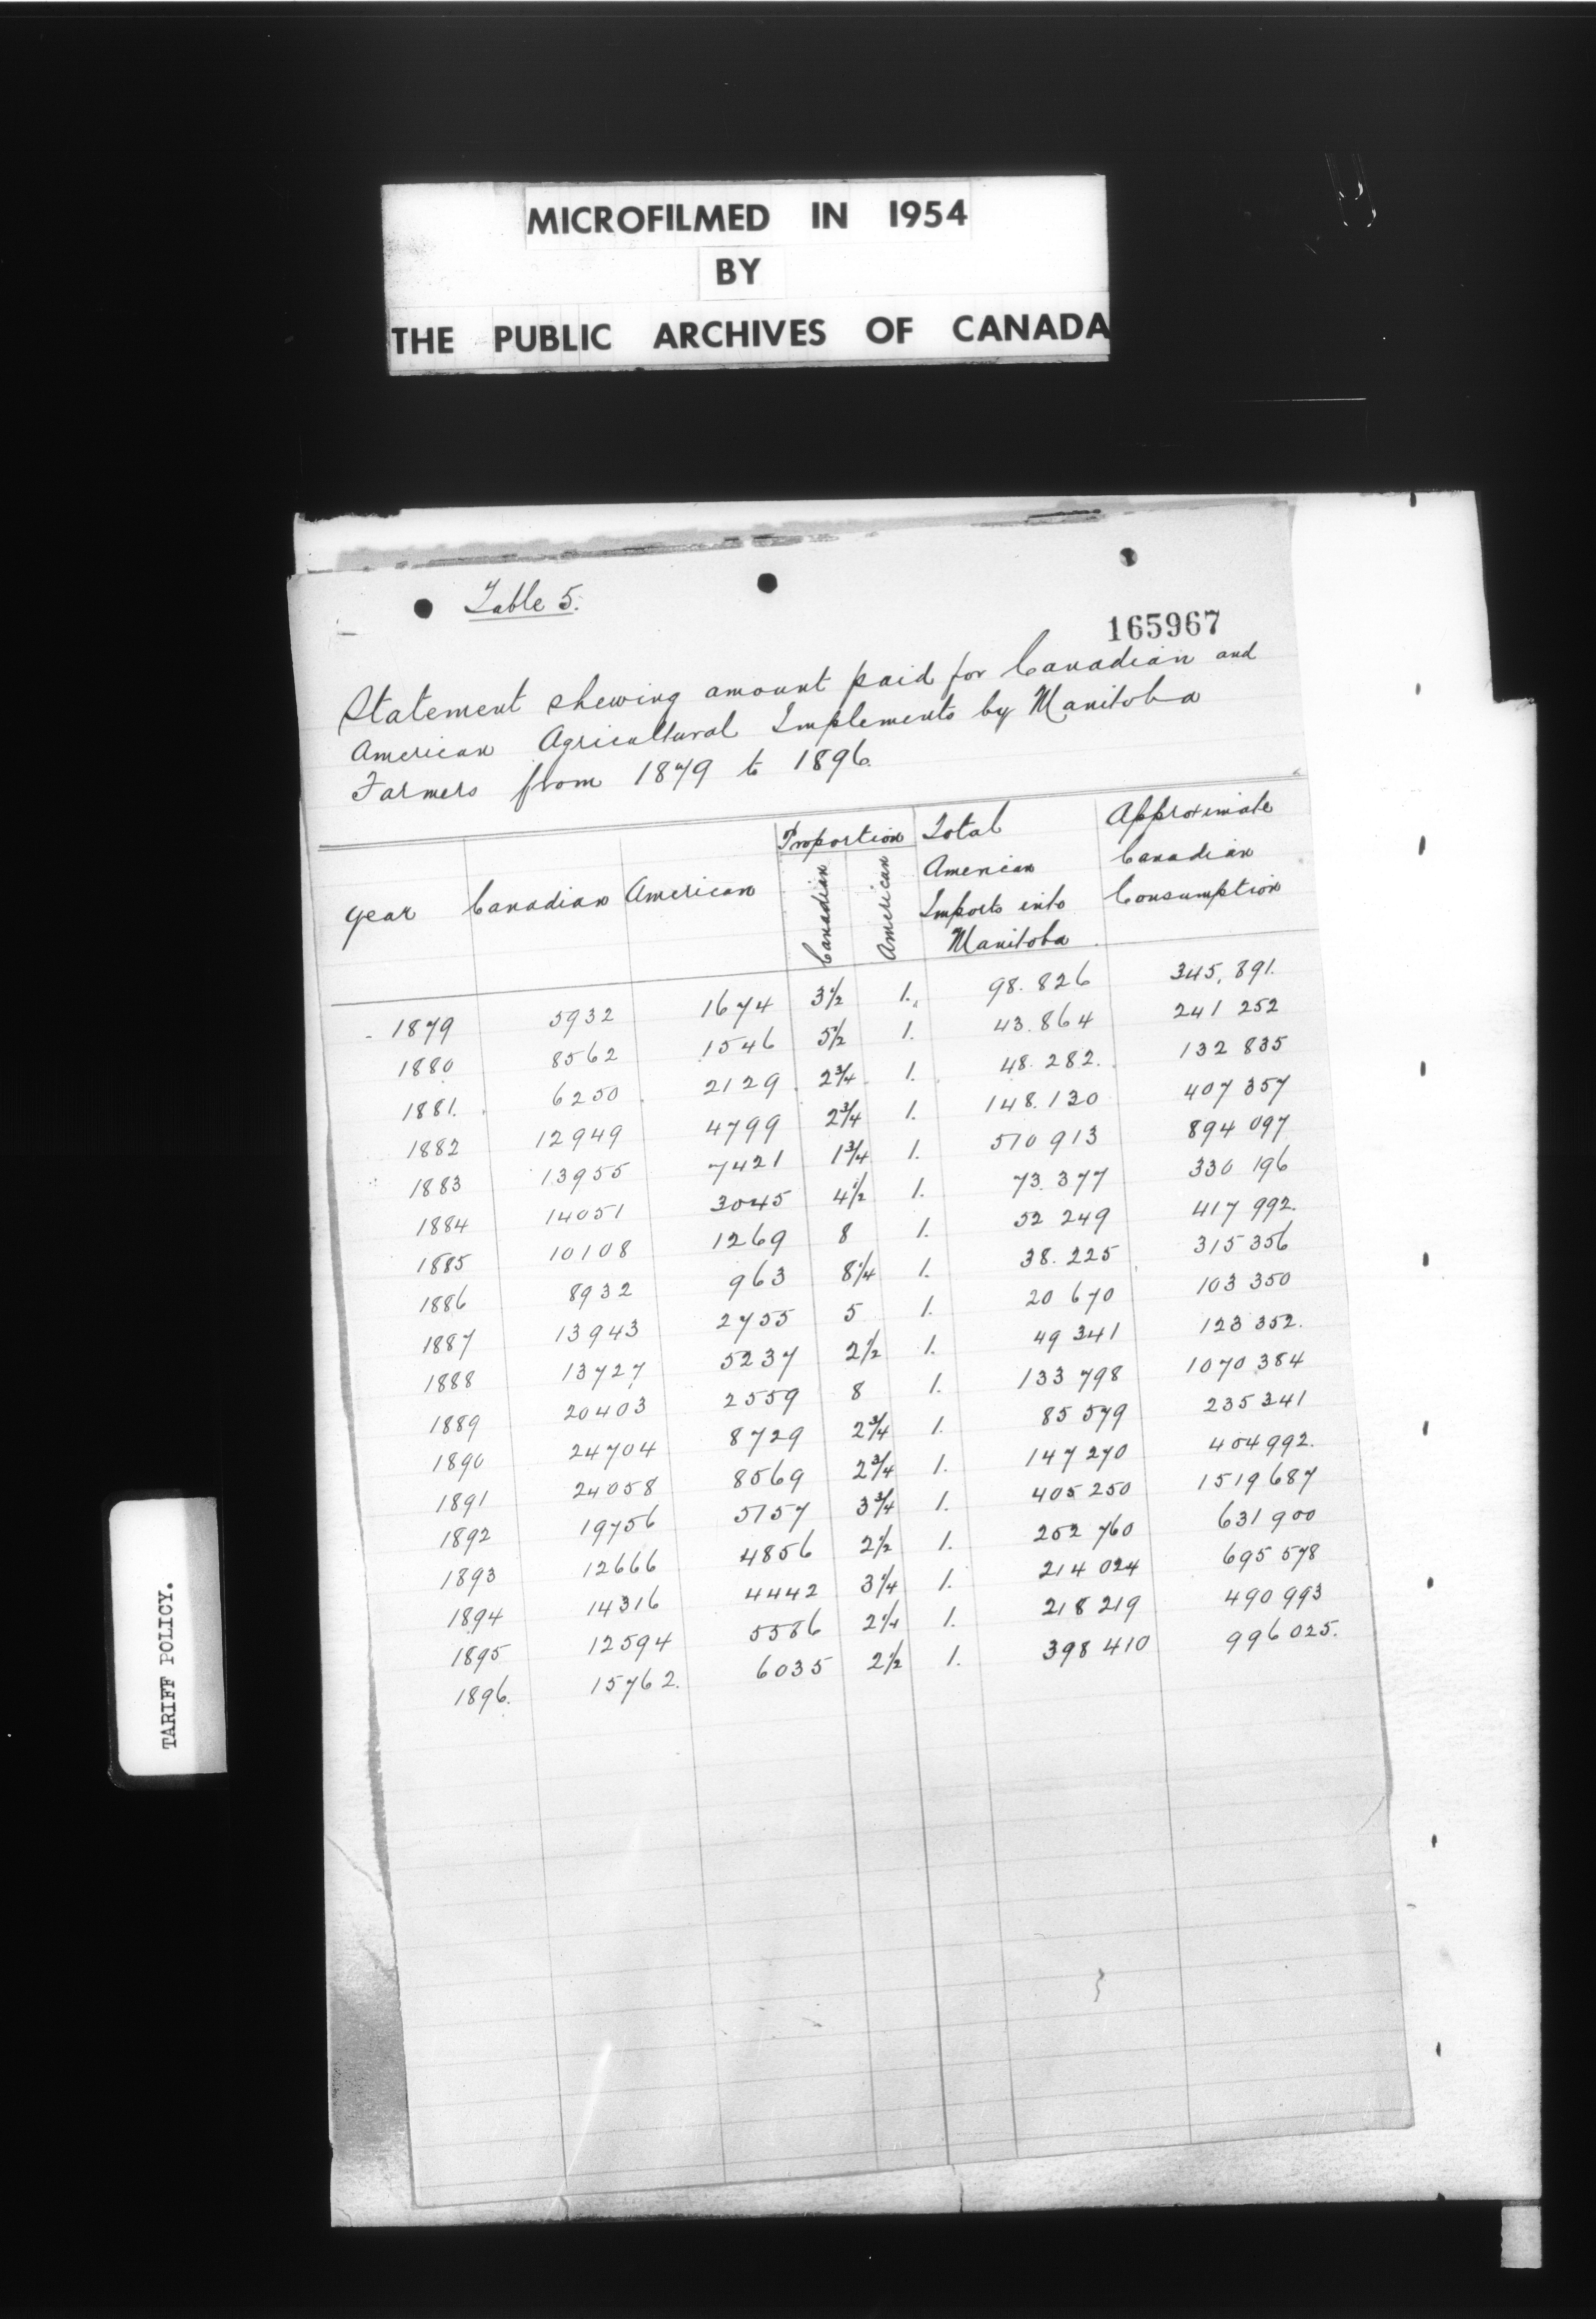 MICROFILMED IN 1954
BY
THE PUBLIC ARCHIVES OF CANADA
Table 5.
165967
Statement shewing amount paid for Canadian and
American Agricultural Implements by Manitoba
Farmers from 1879 to 1896.
Year Canadian American Proportion Canadian American Total American Imports into Manitoba Approximate Canadian Consumption
1879 5932 1674 3½ 1. 98.826 345,891.
1880 8562 1546 5½ 1. 43.864 241 252
1881. 6250 2129 2¾ 1. 48.282. 132 835
1882 12949 4799 2¾ 1. 148.130 407 357
1883 13955 7421 1¾ 1. 510 913 894 097
1884 14051 3045 4½ 1. 73.377 330 196
1885 10108 1269 8 1. 52 249 417 992.
1886 8932 963 8¼ 1. 38.225 315 356
1887 13943 2755 5 1. 20 670 103 350
1888 13727 5237 2½ 1. 49 341 123 352.
1889 20403 2559 8 1. 133 798 1070 384
1890 24704 8729 2¾ 1. 85 579 235 341
1891 24058 8569 2¾ 1. 147 270 404 992.
1892 19756 5157 3¾ 1. 405 250 1519 687
1893 12666 4856 2½ 1. 252 760 631 900
1894 14316 4442 3¼ 1. 214 024 695 578
1895 12594 5586 2¼ 1. 218 219 490 993
1896. 15762. 6035 2½ 1. 398 410 996 025.
TARIFF POLICY.